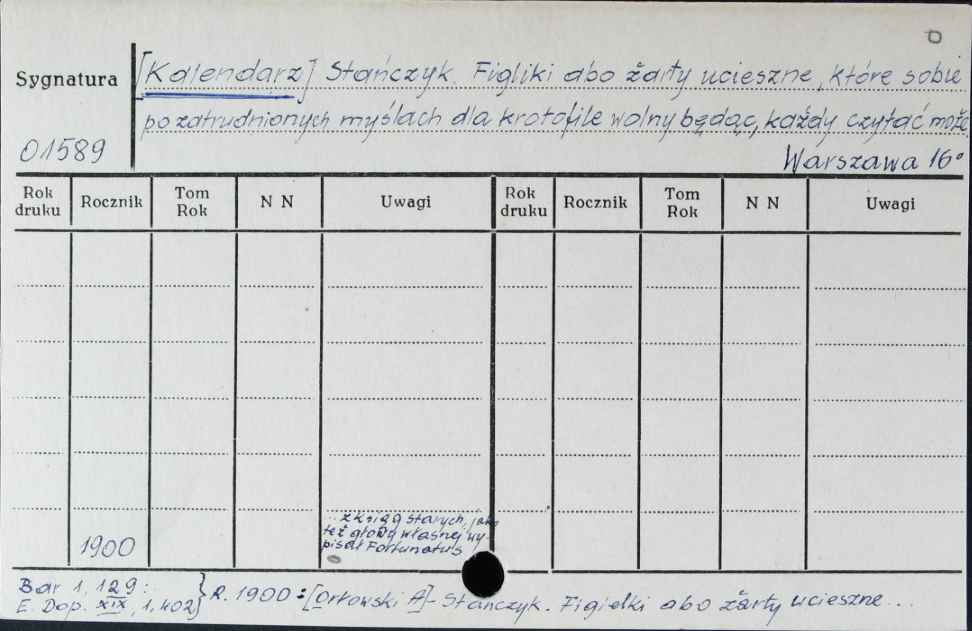 [Kalendarz] Stańczyk. Figliki abo żarty ucieszne, które sobie
po zatrudnionych myślach dla krotofile wolny będąc, każdy czytać może
Warszawa 16°
Sygnatura
01589
Rok druku Rocznik Tom Rok N N Uwagi Rok druku Rocznik Tom Rok N N Uwagi
...z ksiąg starych, jako
też głowy własnej wy-
pisał Fortunatus
1900
Bar 1, 129:
E. Dop. XIX, 1,402} R. 1900: [Orłowski A] - Stańczyk. Figielki abo żarty ucieszne...